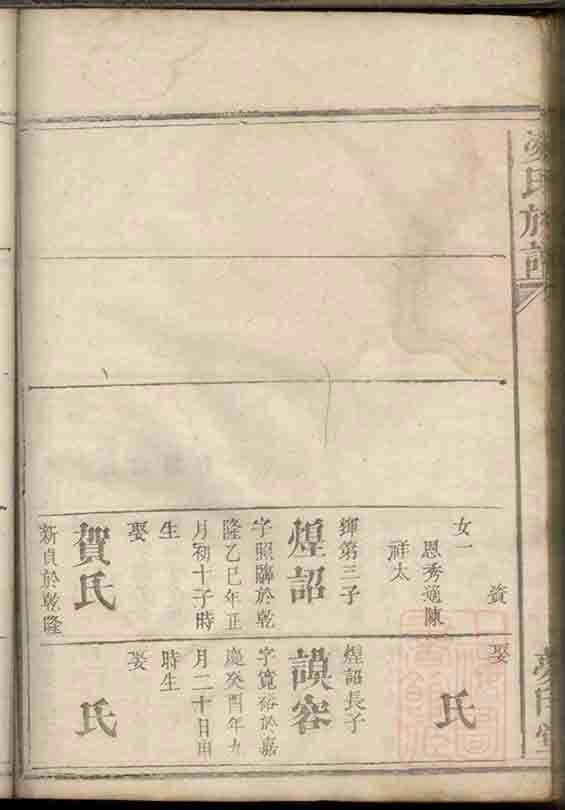 凌氏族譜
資
女一
恩秀適陳
祥太
煇第三子
煌詔
字照臨於乾
隆乙巳年正
月初十子時
生
娶
賀氏
新貞於乾隆
娶
氏
煌詔長子
謨容
字寬裕於嘉
慶癸酉年九
月二十日申
時生
娶
氏